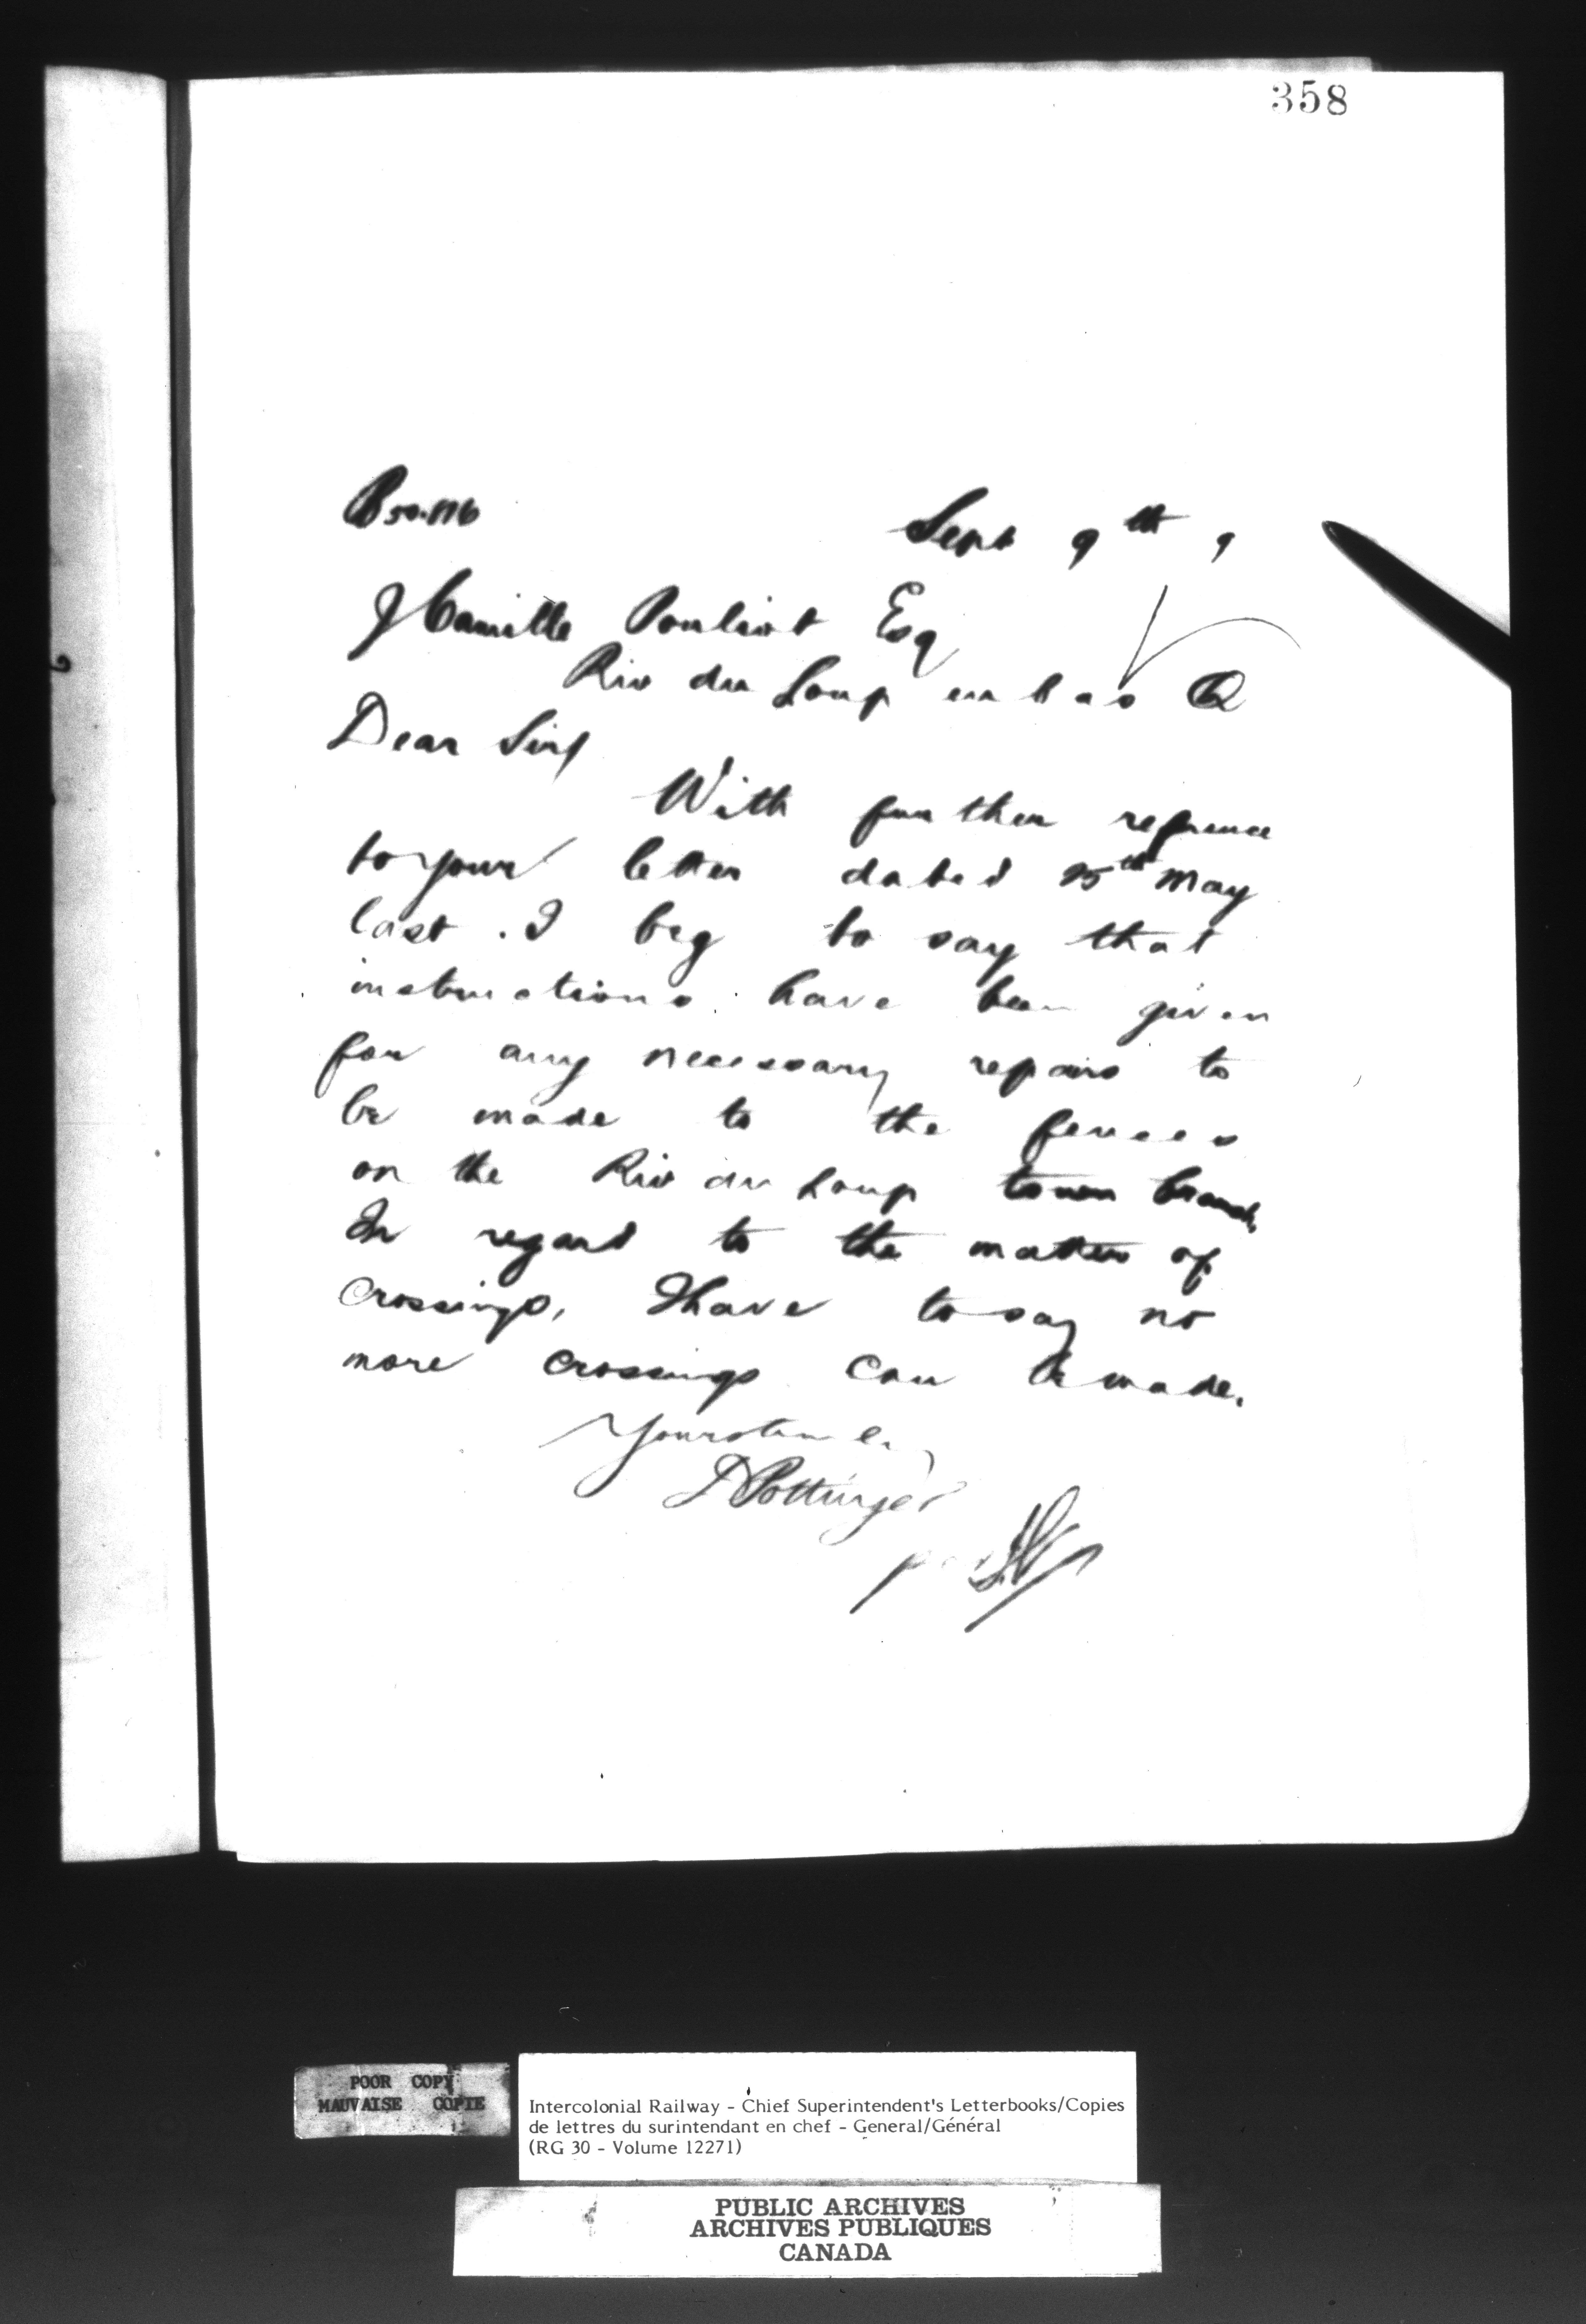 358
Sept 9th 9
J Camille Pouliot Esq
Riv du Loup en bas Q
Dear Sir
With further reference
to your letter dated 25th May
last. I beg to say that
instructions have been given
for any necessary repairs to
be made to the fences
on the Riv du Loup town branch.
In regard to the matter of
crossings, I have to say no
more crossings can be made.
Yours truly
D Pottinger
POOR COPY
MAUVAISE COPIE
Intercolonial Railway - Chief Superintendent's Letterbooks/Copies
de lettres du surintendant en chef - General/Général
(RG 30 - Volume 12271)
PUBLIC ARCHIVES
ARCHIVES PUBLIQUES
CANADA